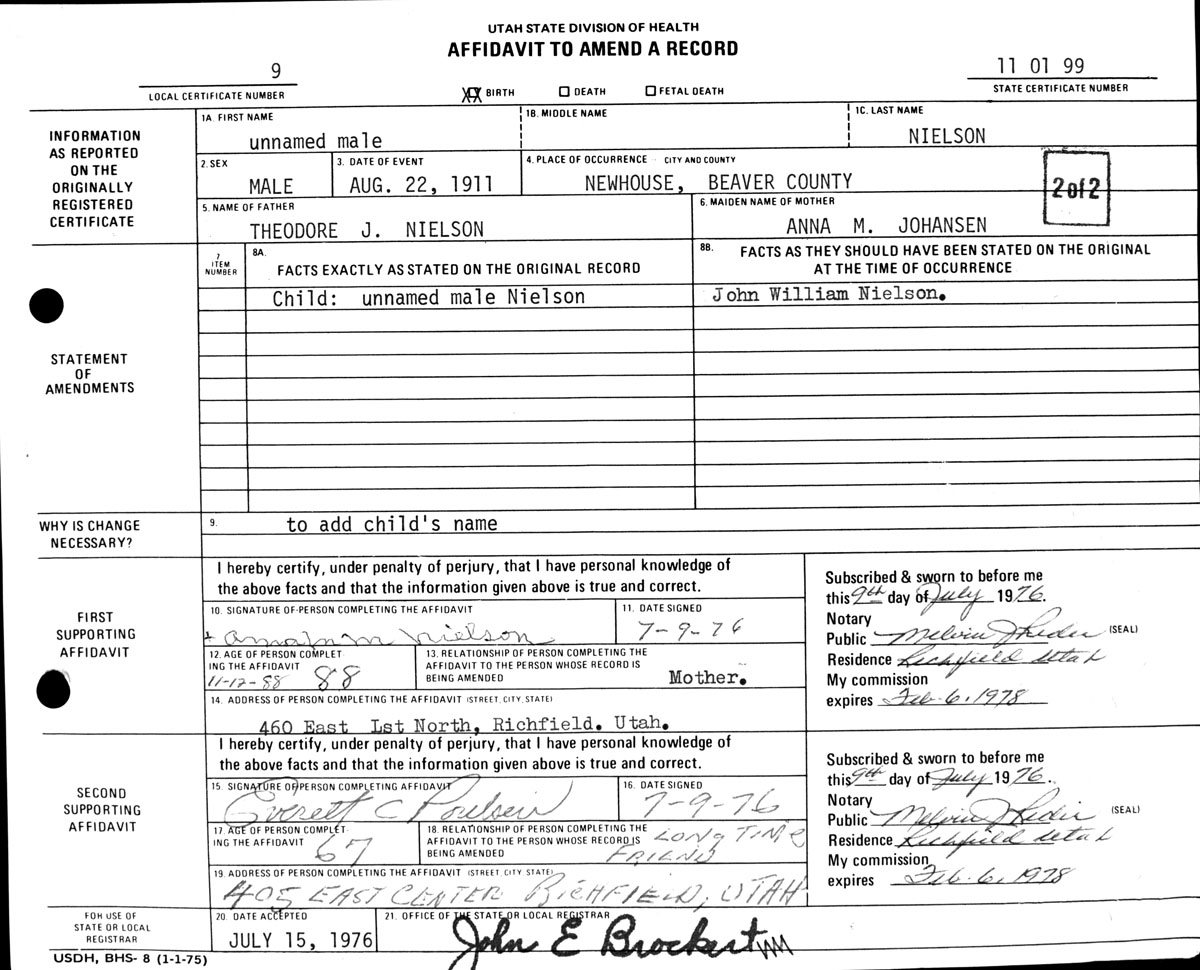 UTAH STATE DIVISION OF HEALTH
AFFIDAVIT TO AMEND A RECORD
9
LOCAL CERTIFICATE NUMBER
XX BIRTH
DEATH
FETAL DEATH
11 01 99
STATE CERTIFICATE NUMBER
INFORMATION
AS REPORTED
ON THE
ORIGINALLY
REGISTERED
CERTIFICATE
1A. FIRST NAME
unnamed male
1B. MIDDLE NAME
1C. LAST NAME
NIELSON
2. SEX
MALE
3. DATE OF EVENT
AUG. 22, 1911
4. PLACE OF OCCURRENCE - CITY AND COUNTY
NEWHOUSE, BEAVER COUNTY
2 of 2
5. NAME OF FATHER
THEODORE J. NIELSON
6. MAIDEN NAME OF MOTHER
ANNA M. JOHANSEN
STATEMENT
OF
AMENDMENTS
7
ITEM
NUMBER
8A.
FACTS EXACTLY AS STATED ON THE ORIGINAL RECORD
8B.
FACTS AS THEY SHOULD HAVE BEEN STATED ON THE ORIGINAL
AT THE TIME OF OCCURRENCE
Child: unnamed male Nielson
John William Nielson.
WHY IS CHANGE
NECESSARY?
9.
to add child's name
FIRST
SUPPORTING
AFFIDAVIT
I hereby certify, under penalty of perjury, that I have personal knowledge of
the above facts and that the information given above is true and correct.
10. SIGNATURE OF PERSON COMPLETING THE AFFIDAVIT
Nielson
11. DATE SIGNED
7-9-76
12. AGE OF PERSON COMPLET
ING THE AFFIDAVIT
11-12-88 88
13. RELATIONSHIP OF PERSON COMPLETING THE
AFFIDAVIT TO THE PERSON WHOSE RECORD IS
BEING AMENDED
Mother.
14. ADDRESS OF PERSON COMPLETING THE AFFIDAVIT (STREET, CITY, STATE)
460 East Lst North, Richfield. Utah.
Subscribed & sworn to before me
this 9th day of July 1976.
Notary
Public Melvin J (SEAL)
Residence Richfield Utah
My commission
expires Feb. 6, 1978
SECOND
SUPPORTING
AFFIDAVIT
I hereby certify, under penalty of perjury, that I have personal knowledge of
the above facts and that the information given above is true and correct.
15. SIGNATURE OF PERSON COMPLETING AFFIDAVIT
Everett C Poulsen
16. DATE SIGNED
7-9-76
17. AGE OF PERSON COMPLET
ING THE AFFIDAVIT
67
18. RELATIONSHIP OF PERSON COMPLETING THE
AFFIDAVIT TO THE PERSON WHOSE RECORD IS
BEING AMENDED
LONG TIME
FRIEND
19. ADDRESS OF PERSON COMPLETING THE AFFIDAVIT (STREET, CITY STATE)
405 EAST CENTER RICHFIELD, UTAH
Subscribed & sworn to before me
this 9th day of July 1976.
Notary
Public Melvin J (SEAL)
Residence Richfield Utah
My commission
expires Feb. 6, 1978
FOR USE OF
STATE OR LOCAL
REGISTRAR
20. DATE ACCEPTED
JULY 15, 1976
21. OFFICE OF THE STATE OR LOCAL REGISTRAR
John E Brockert
USDH, BHS- 8 (1-1-75)